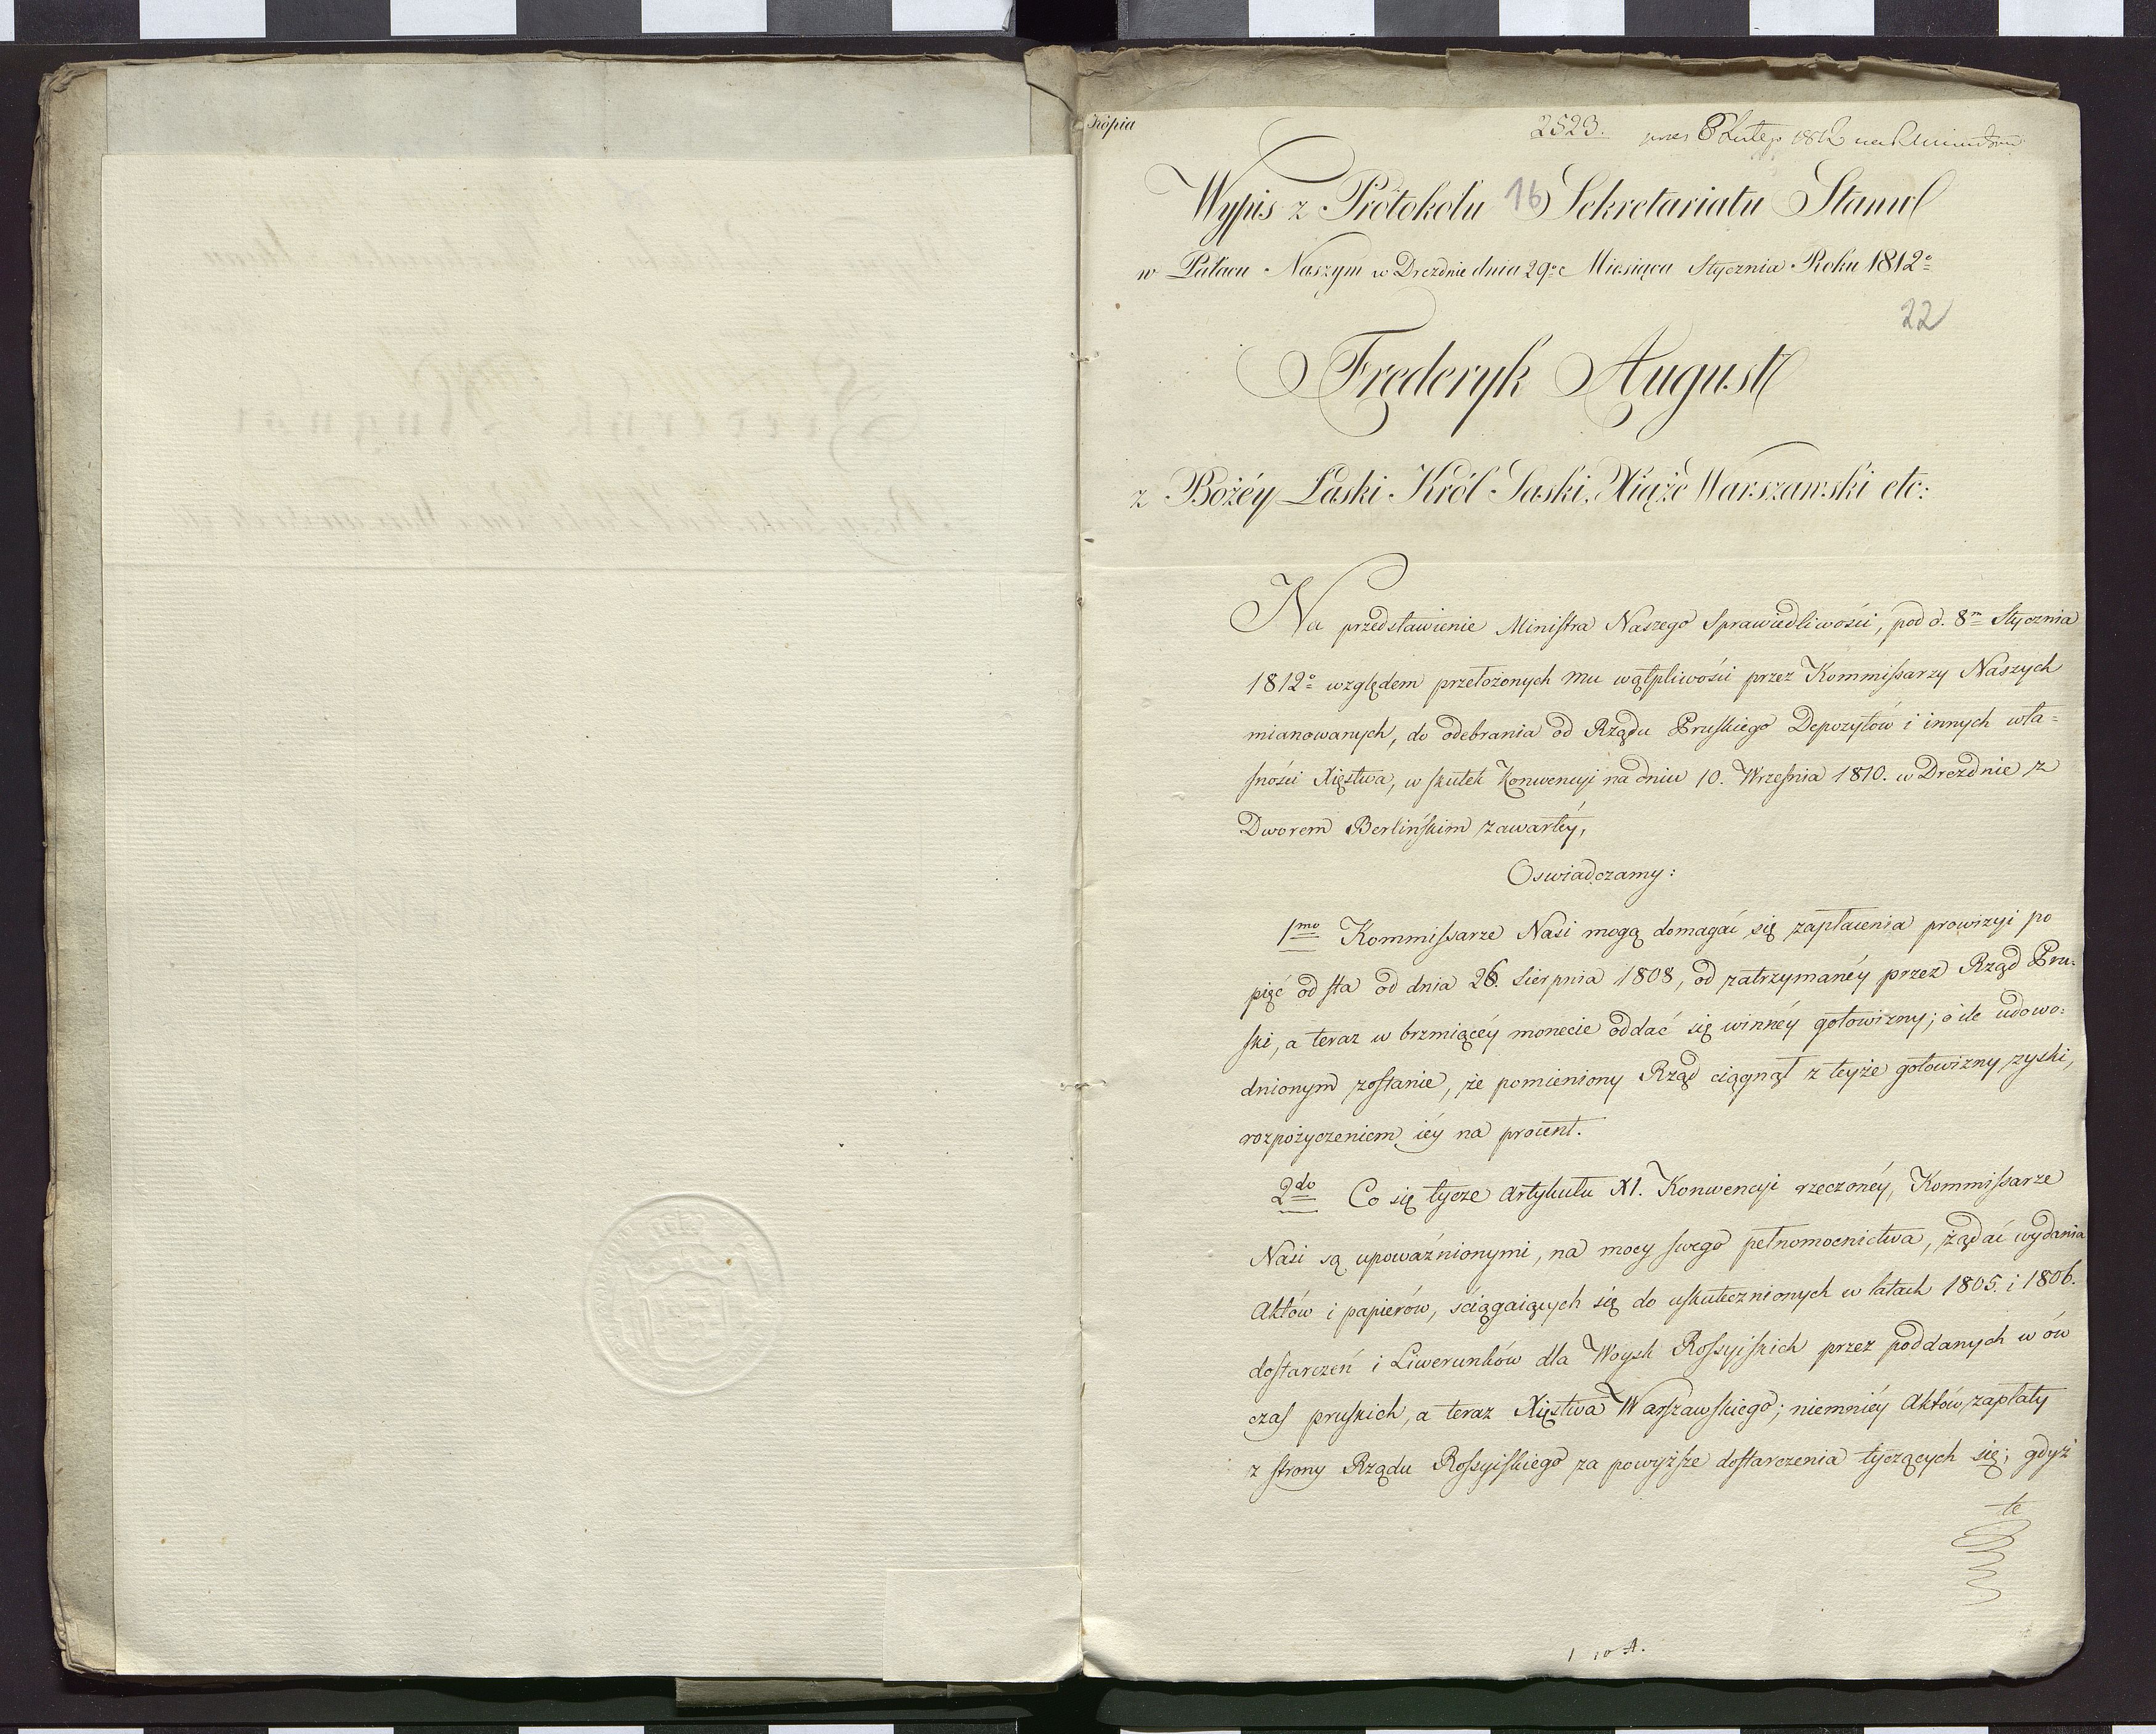 Kopia
2523.
8 Lutego 1812
Wypis z Protokołu Sekretariatu Stanu
16
w Pałacu Naszym w Dreznie dnia 29o Miesiąca Stycznia Roku 1812o
22
Frederyk August
z Bożéy Łaski Król Saski, Xiąże Warszawski etc:
Na przedstawienie Ministra Naszego Sprawiedliwości, pod d. 8m Stycznia
1812o względem przełożonych mu wątpliwości przez Kommissarzy Naszych
mianowanych, do odebrania od Rządu Pruskiego Depozytów i innych wła=
sności Xięstwa, w skutek Konwencyi na dniu 10. Września 1810. w Dreznie z
Dworem Berlińskim zawartéy,
Oswiadczamy:
1mo Kommissarze Nasi mogą domagać się zapłacenia prowizyi po
pięć od sta od dnia 26. Sierpnia 1808, od zatrzymanéy przez Rząd Pru=
ski, a teraz w brzmiącéy monecie oddać się winnéy gotowizny; o ile udowo=
dnionym zostanie, że pomieniony Rząd ciągnął z teyże gotowizny zyski,
rozpożyczeniem iéy na procent.
2do Co się tycze Artykułu XI. Konwencyi rzeczonéy, Kommissarze
Nasi są upoważnionymi, na mocy swego pełnomocnictwa, żądać wydania
Aktów i papierów, ściągaiących się do uskutecznionych w latach 1805. i 1806.
dostarczeń i Liwerunków dla Woysk Rossyiskich przez poddanych w ów
czas pruskich, a teraz Xięstwa Warszawskiego; niemniéy Aktów zapłaty
z strony Rządu Rossyiskiego za powyższe dostarczenia tyczących się; gdyż
te